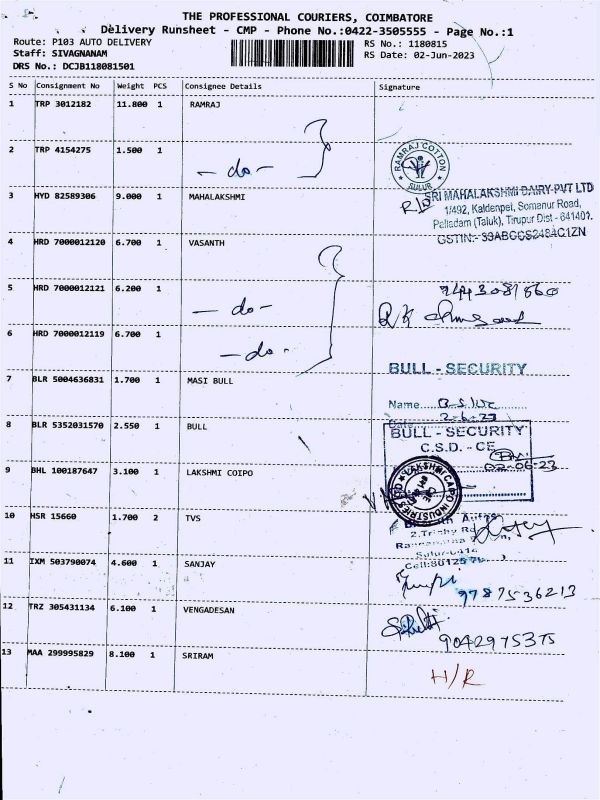 THE PROFESSIONAL COURIERS, COIMBATORE
Delivery Runsheet - CMP - Phone No.:0422-3505555 - Page No.:1
Route: P103 AUTO DELIVERY
RS No.: 1180815
Staff: SIVAGNANAM
RS Date: 02-Jun-2023
DRS No.: DCJB118081501
S No Consignment No Weight PCS Consignee Details Signature
1 TRP 3012182 11.800 1 RAMRAJ
2 TRP 4154275 1.500 1 - do -
RAMRAJ COTTON
SULUR
3 HYD 82589306 9.000 1 MAHALAKSHMI
SRI MAHALAKSHMI DAIRY PVT LTD
1/492, Kaldenpei, Somanur Road,
Palladam (Taluk), Tirupur Dist - 641401.
4 HRD 7000012120 6.700 1 VASANTH
5 HRD 7000012121 6.200 1 - do -
6 HRD 7000012119 6.700 1 - do -
7 BLR 5004636831 1.700 1 MASI BULL
BULL - SECURITY
Name
8 BLR 5352031570 2.550 1 BULL
BULL - SECURITY
C.S.D. - CE
02-06-23
9 BHL 100187647 3.100 1 LAKSHMI COIPO
10 HSR 15660 1.700 2 TVS
11 IXM 503790074 4.600 1 SANJAY
9787536213
12 TRZ 305431134 6.100 1 VENGADESAN
9042975375
13 MAA 299995829 8.100 1 SRIRAM
H/R